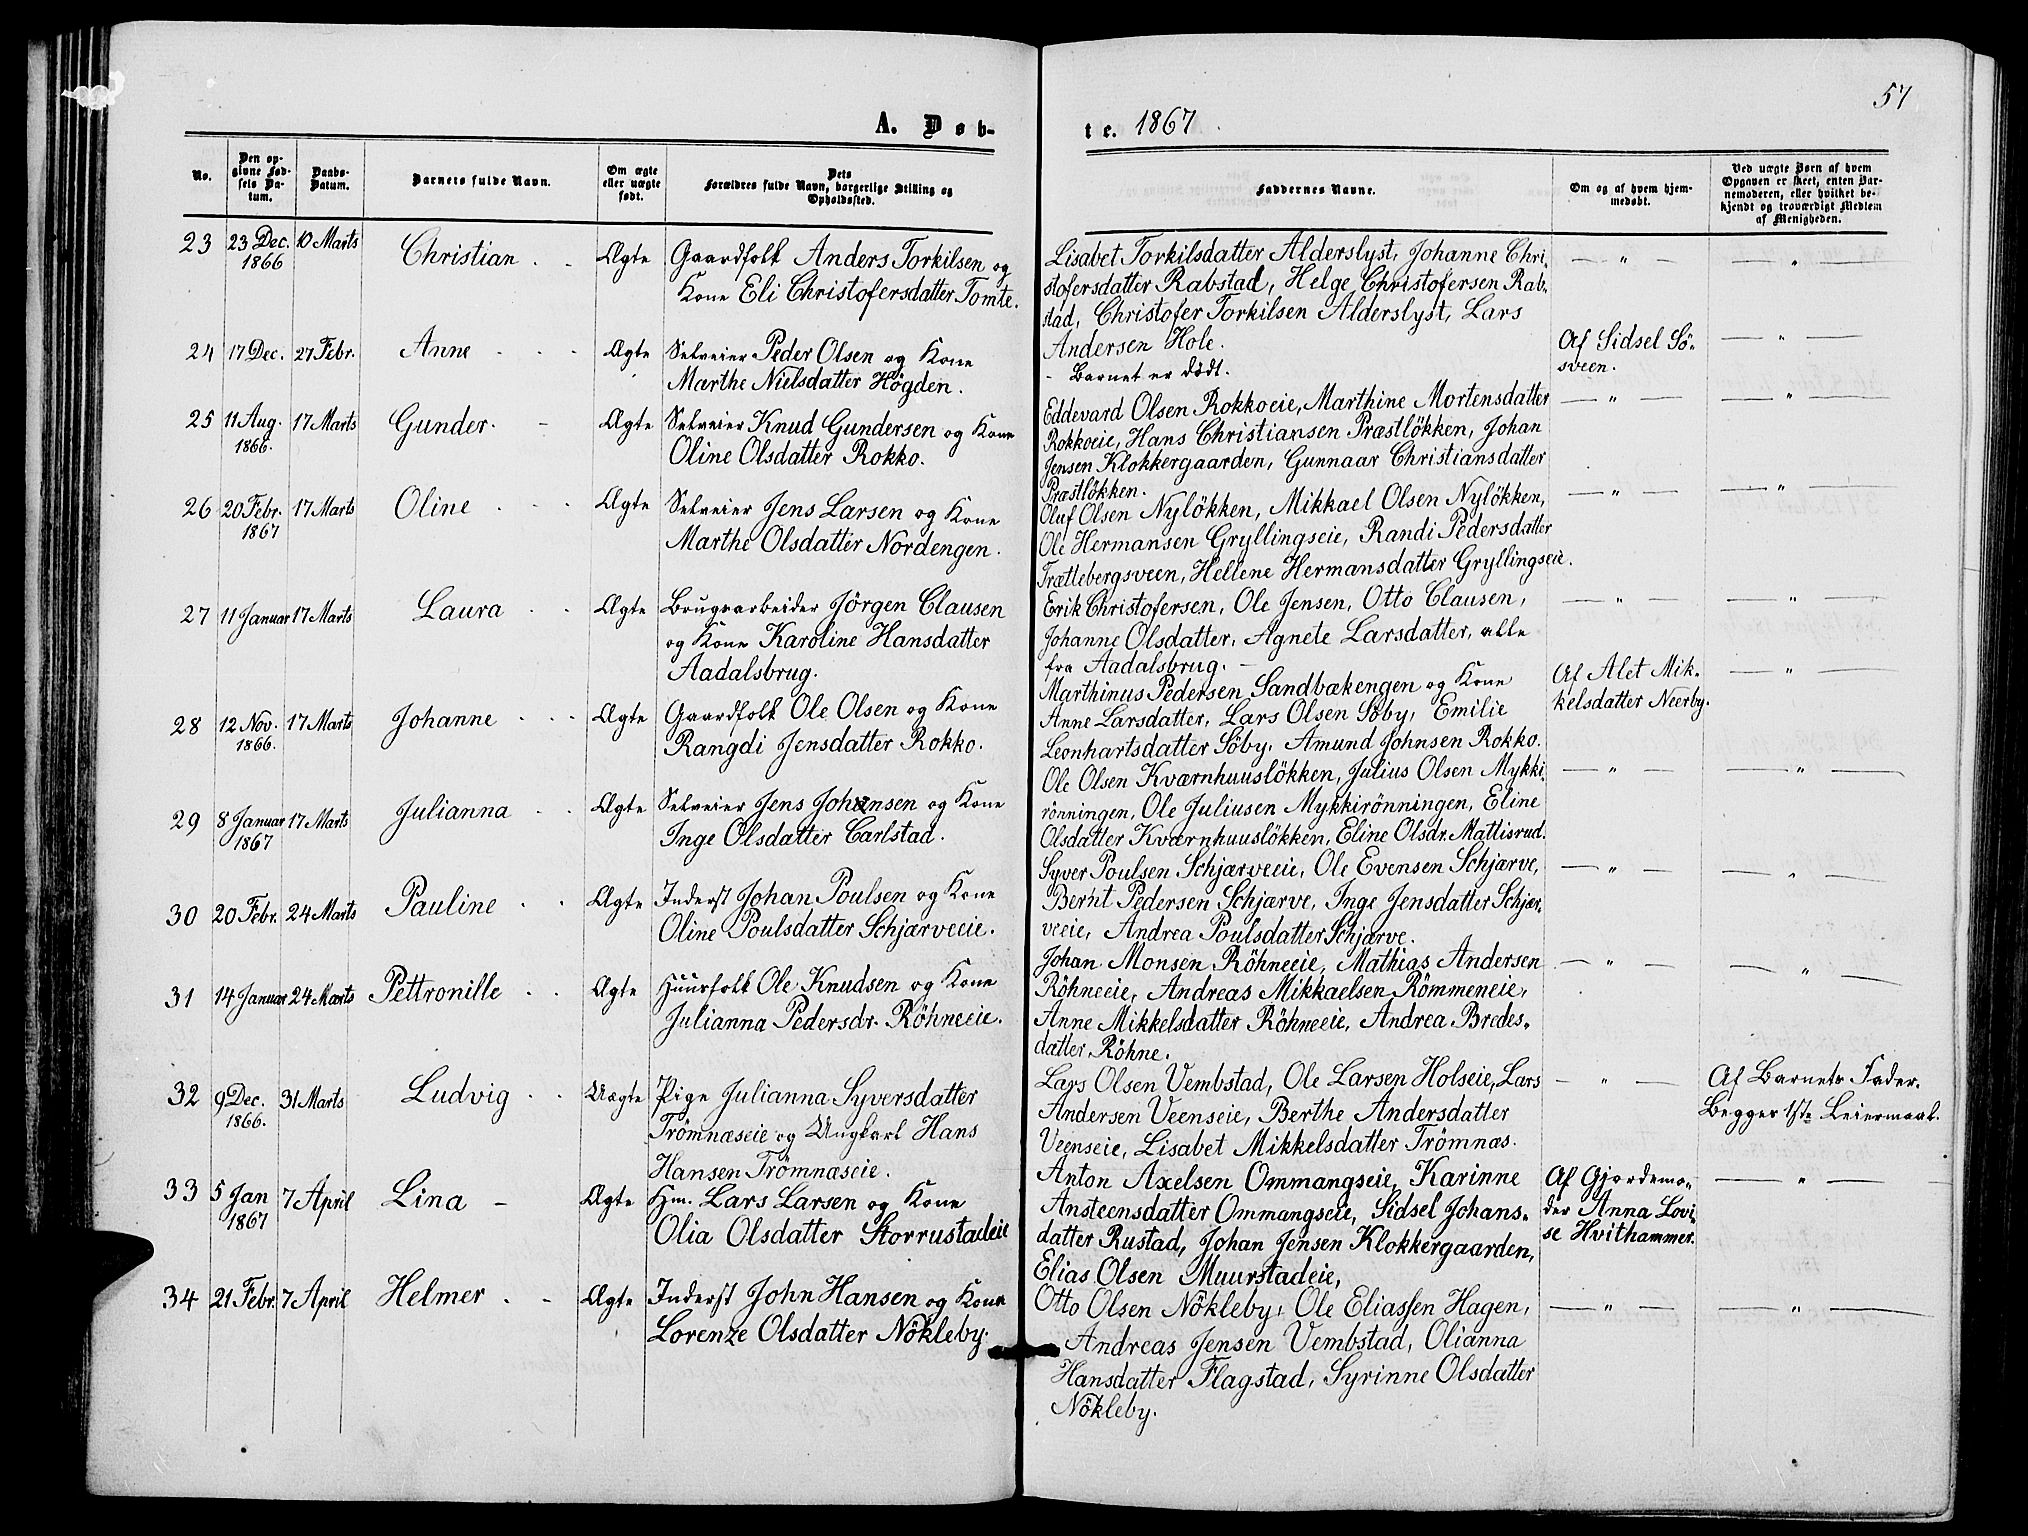 57
A. Døb-
te. 1867.
No.
Den opgivne Fødsels Datum.
Daabs-Datum.
Barnets fulde Navn.
Om ægte eller uægte født.
Dets Forældres fulde Navn, borgerlige Stilling og Opholdssted.
Faddernes Navne.
Om og af hvem hjemmedøbt.
Ved uægte Børn af hvem Opgaven er skeet, enten Barnemoderen, eller hvilket bekjendt og troværdigt Medlem af Menigheden.
23 23 Dec. 1866 10 Marts Christian Ægte Gaardfolk Anders Torkilsen og
Kone Eli Christofersdatter Tomte.
Lisabet Torkilsdatter Alderslyst, Johanne Chri-
stofersdatter Rabstad, Helge Christofersen Rab-
stad, Christofer Torkilsen Alderslyst, Lars
Andersen Hole.
— " — — " —
24 17 Dec. 27 Febr. Anne Ægte Selveier Peder Olsen og Kone
Marthe Nielsdatter Högden.
- Barnet er dödt.
Af Sidsel Sö-
sveen.
— " —
25 11 Aug. 1866. 17 Marts Gunder Ægte Selveier Knud Gundersen og Kone
Oline Olsdatter Rokko.
Eddevard Olsen Rokkoeie, Marthine Mortensdatter
Rokkoeie, Hans Christiansen Præstlökken, Johan
Jensen Klokkergaarden, Gunnaar Christiansdatter
Præstlökken.
— " — — " —
26 20 Febr. 1867 17 Marts Oline Ægte Selveier Jens Larsen og Kone
Marthe Olsdatter Nordengen.
Oluf Olsen Nylökken, Mikkael Olsen Nylökken,
Ole Hermansen Gryllingseie, Randi Pedersdatter
Trættebergsveen, Hellene Hermansdatter Gryllingseie.
— " — — " —
27 11 Januar 17 Marts Laura Ægte Brugsarbeider Jörgen Clausen
og Kone Karoline Hansdatter
Aadalsbrug.
Erik Christofersen, Ole Jensen, Otto Clausen,
Johanne Olsdatter, Agnete Larsdatter, alle
fra Aadalsbrug. —
— " — — " —
28 12 Nov. 1866. 17 Marts Johanne Ægte Gaardfolk Ole Olsen og Kone
Rangdi Jensdatter Rokko.
Marthinus Pedersen Sandbækengen og Kone
Anne Larsdatter, Lars Olsen Söby, Emilie
Leonhartsdatter Söby, Amund Johnsen Rokko.
Af Alet Mik-
kelsdatter Neerby.
— " —
29 8 Januar 1867 17 Marts Julianna Ægte Selveier Jens Johansen og Kone
Inge Olsdatter Carlstad.
Ole Olsen Kværnhuuslökken, Julius Olsen Mykki-
rönningen, Ole Juliusen Mykkirönningen, Eline
Olsdatter Kværnhuuslökken, Eline Olsdr. Mattisrud.
— " — — " —
30 20 Febr. 24 Marts Pauline Ægte Inderst Johan Poulsen og Kone
Oline Poulsdatter Schjærveeie.
Syver Poulsen Schjærveeie, Ole Evensen Schjærve,
Bernt Pedersen Schjærve, Inge Jensdatter Schjær-
veeie, Andrea Poulsdatter Schjærve.
— " — — " —
31 14 Januar 24 Marts Pettronille Ægte Huusfolk Ole Knudsen og Kone
Julianna Pedersdr. Röhneeie.
Johan Monsen Röhneeie, Mathias Andersen
Röhneeie, Andreas Mikkaelsen Römmeneie,
Anne Mikkelsdatter Röhneeie, Andrea Bredes-
datter Röhne.
— " — — " —
32 9 Dec. 1866. 31 Marts Ludvig Uægte Pige Julianna Syversdatter
Trömnæseie og Ungkarl Hans
Hansen Trömnæseie.
Lars Olsen Vembstad, Ole Larsen Holseie, Lars
Andersen Veenseie, Berthe Andersdatter
Veenseie, Lisabet Mikkelsdatter Trömnæs.
— " —
Af Barnets Fader.
Begges 1ste Leiermaal.
33 5 Jan 1867 7 April Lina Ægte Hm. Lars Larsen og Kone
Olia Olsdatter Storrustadeie
Anton Axelsen Ommangseie, Karinne
Ansteensdatter Ommangseie, Sidsel Johans-
datter Rustad, Johan Jensen Klokkergaarden,
Elias Olsen Muurstadeie,
Af Gjordemo-
der Anna Lovi-
se Hvithammer.
— " —
34 21 Febr. 7 April Helmer Ægte Inderst John Hansen og Kone
Lorenze Olsdatter Nökleby.
Otto Olsen Nökleby, Ole Eliassen Hagen,
Andreas Jensen Vembstad, Olianna
Hansdatter Flagstad, Syrinne Olsdatter
Nökleby.
— " — — " —